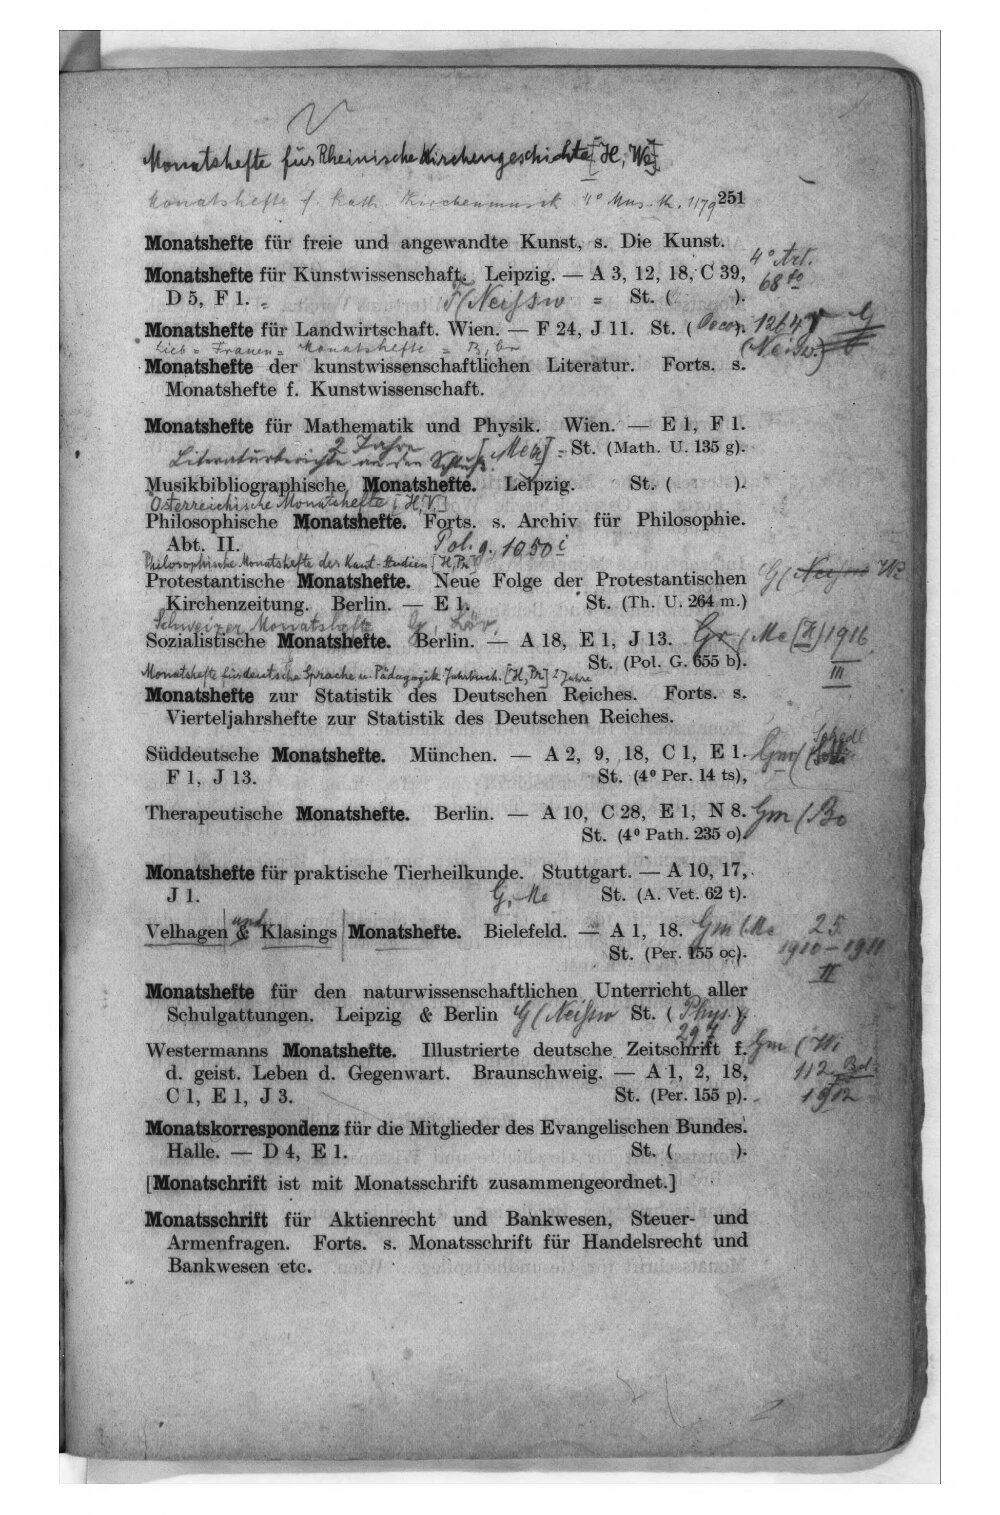 Monatshefte für Rheinische Kirchengeschichte [H, We]
Monatshefte f. Kath. Kirchenmusik 4° Mus. th. 1179
251
Monatshefte für freie und angewandte Kunst, s. Die Kunst.
4° Art.
Monatshefte für Kunstwissenschaft. Leipzig. — A 3, 12, 18, C 39,
68
D 5, F 1. (Neissw = St. ( ).
Monatshefte für Landwirtschaft. Wien. — F 24, J 11. St. (Oecon. 1264
Lieb = Frauen = Monatshefte = B, Gr
(Neissw.)
Monatshefte der kunstwissenschaftlichen Literatur. Forts. s.
Monatshefte f. Kunstwissenschaft.
Monatshefte für Mathematik und Physik. Wien. — E 1, F 1.
2 Jahre
Literaturberichte an den Schluß. St. (Math. U. 135 g).
Musikbibliographische Monatshefte. Leipzig. St. ( ).
Österreichische Monatshefte [H, V.]
Philosophische Monatshefte. Forts. s. Archiv für Philosophie.
Abt. II. Pol. g. 1050 i
Philosophische Monatshefte der Kant-Studien [H, Pr]
Protestantische Monatshefte. Neue Folge der Protestantischen
Kirchenzeitung. Berlin. — E 1. St. (Th. U. 264 m.)
Schweizer Monatshefte G, Löv.
Sozialistische Monatshefte. Berlin. — A 18, E 1, J 13. Gr (Me [H] 1916
St. (Pol. G. 655 b).
III
Monatshefte für deutsche Sprache u. Pädagogik Jahrbuch. [H, Pr] 2 Jahre
Monatshefte zur Statistik des Deutschen Reiches. Forts. s.
Vierteljahrshefte zur Statistik des Deutschen Reiches.
Süddeutsche Monatshefte. München. — A 2, 9, 18, C 1, E 1. Gm (
F 1, J 13. St. (4° Per. 14 ts),
Therapeutische Monatshefte. Berlin. — A 10, C 28, E 1, N 8. Gm (Bo
St. (4° Path. 235 o).
Monatshefte für praktische Tierheilkunde. Stuttgart. — A 10, 17,
J 1. G, Me St. (A. Vet. 62 t).
Velhagen & und Klasings Monatshefte. Bielefeld. — A 1, 18. Gm (Me 25
St. (Per. 155 oc). 1910–1911
II
Monatshefte für den naturwissenschaftlichen Unterricht aller
Schulgattungen. Leipzig & Berlin G (Neissw St. (Phys. g
297
Westermanns Monatshefte. Illustrierte deutsche Zeitschrift f. Gm (Wi
d. geist. Leben d. Gegenwart. Braunschweig. — A 1, 2, 18, 112. Bd.
C 1, E 1, J 3. St. (Per. 155 p). 1912
Monatskorrespondenz für die Mitglieder des Evangelischen Bundes.
Halle. — D 4, E 1. St. ( ).
[Monatschrift ist mit Monatsschrift zusammengeordnet.]
Monatsschrift für Aktienrecht und Bankwesen, Steuer- und
Armenfragen. Forts. s. Monatsschrift für Handelsrecht und
Bankwesen etc.